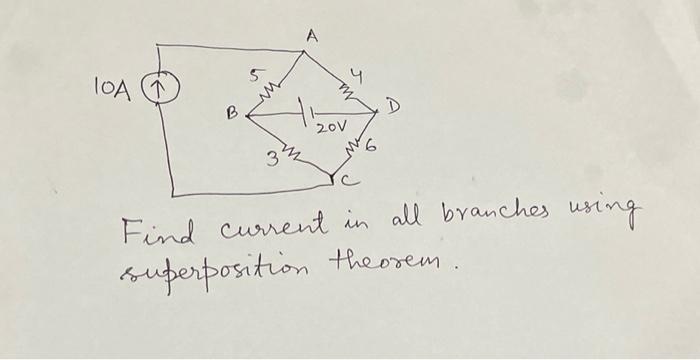 A
10A
5
4
B
D
20V
3
6
C
Find current in all branches using
superposition theorem.